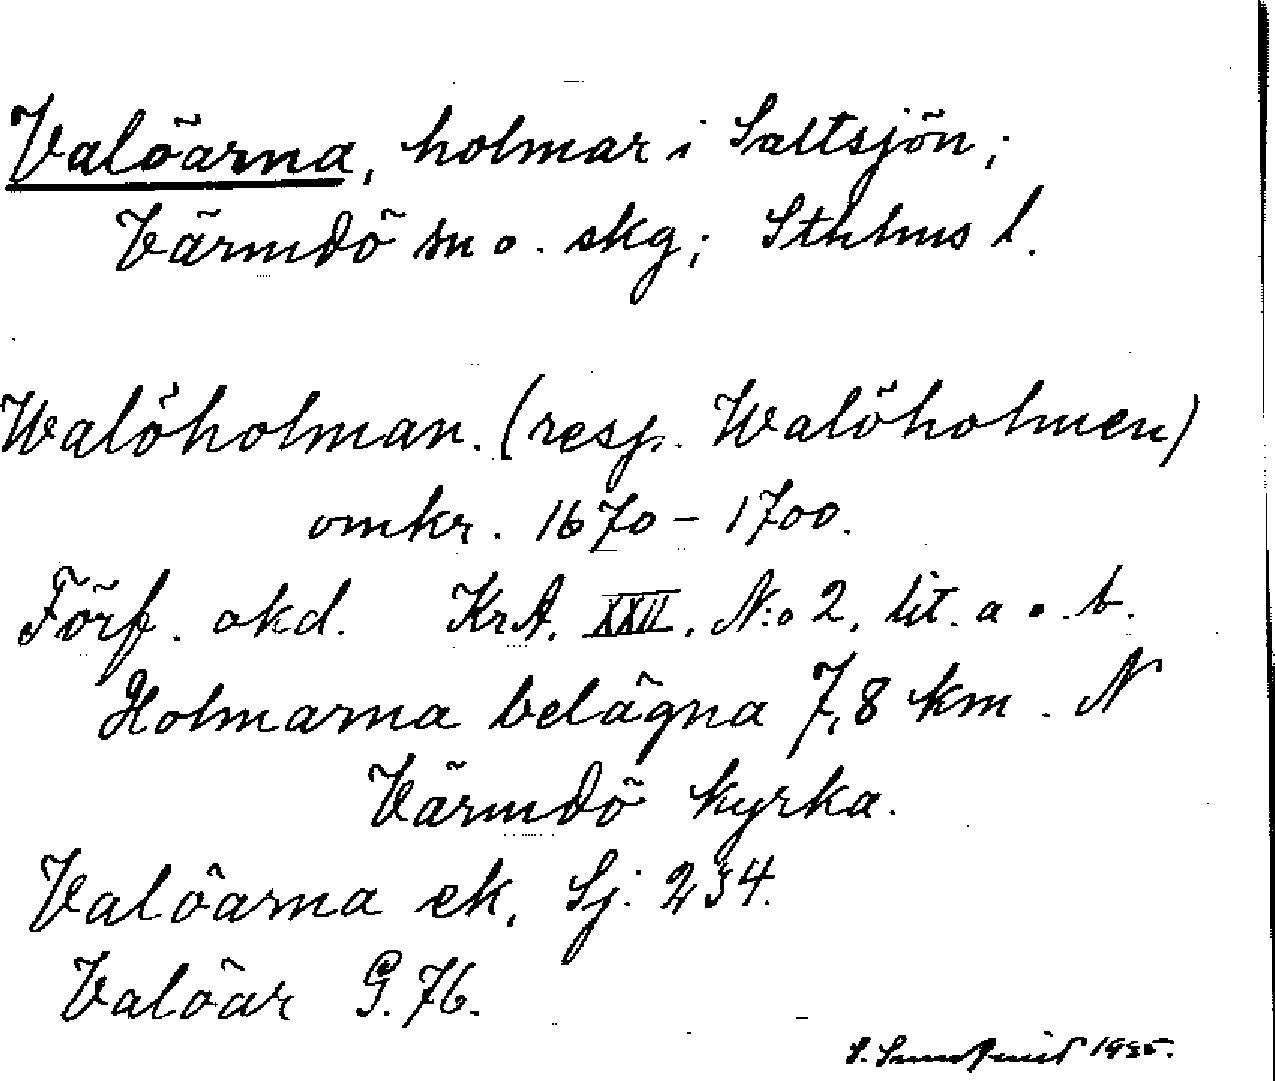 Valöarna, holmar i Saltsjön;
Värmdö sn o. skg; Sthlms l.
Walöholman. (resp. Walöholmen)
omkr. 1670-1700.
Förf. okd. KrA. XXII. N:o 2, lit. a o. b.
Holmarna belägna 7,8 km. N
Värmdö kyrka.
Valöarna ek, Sj: 234.
Valöar G. 76.
1935.